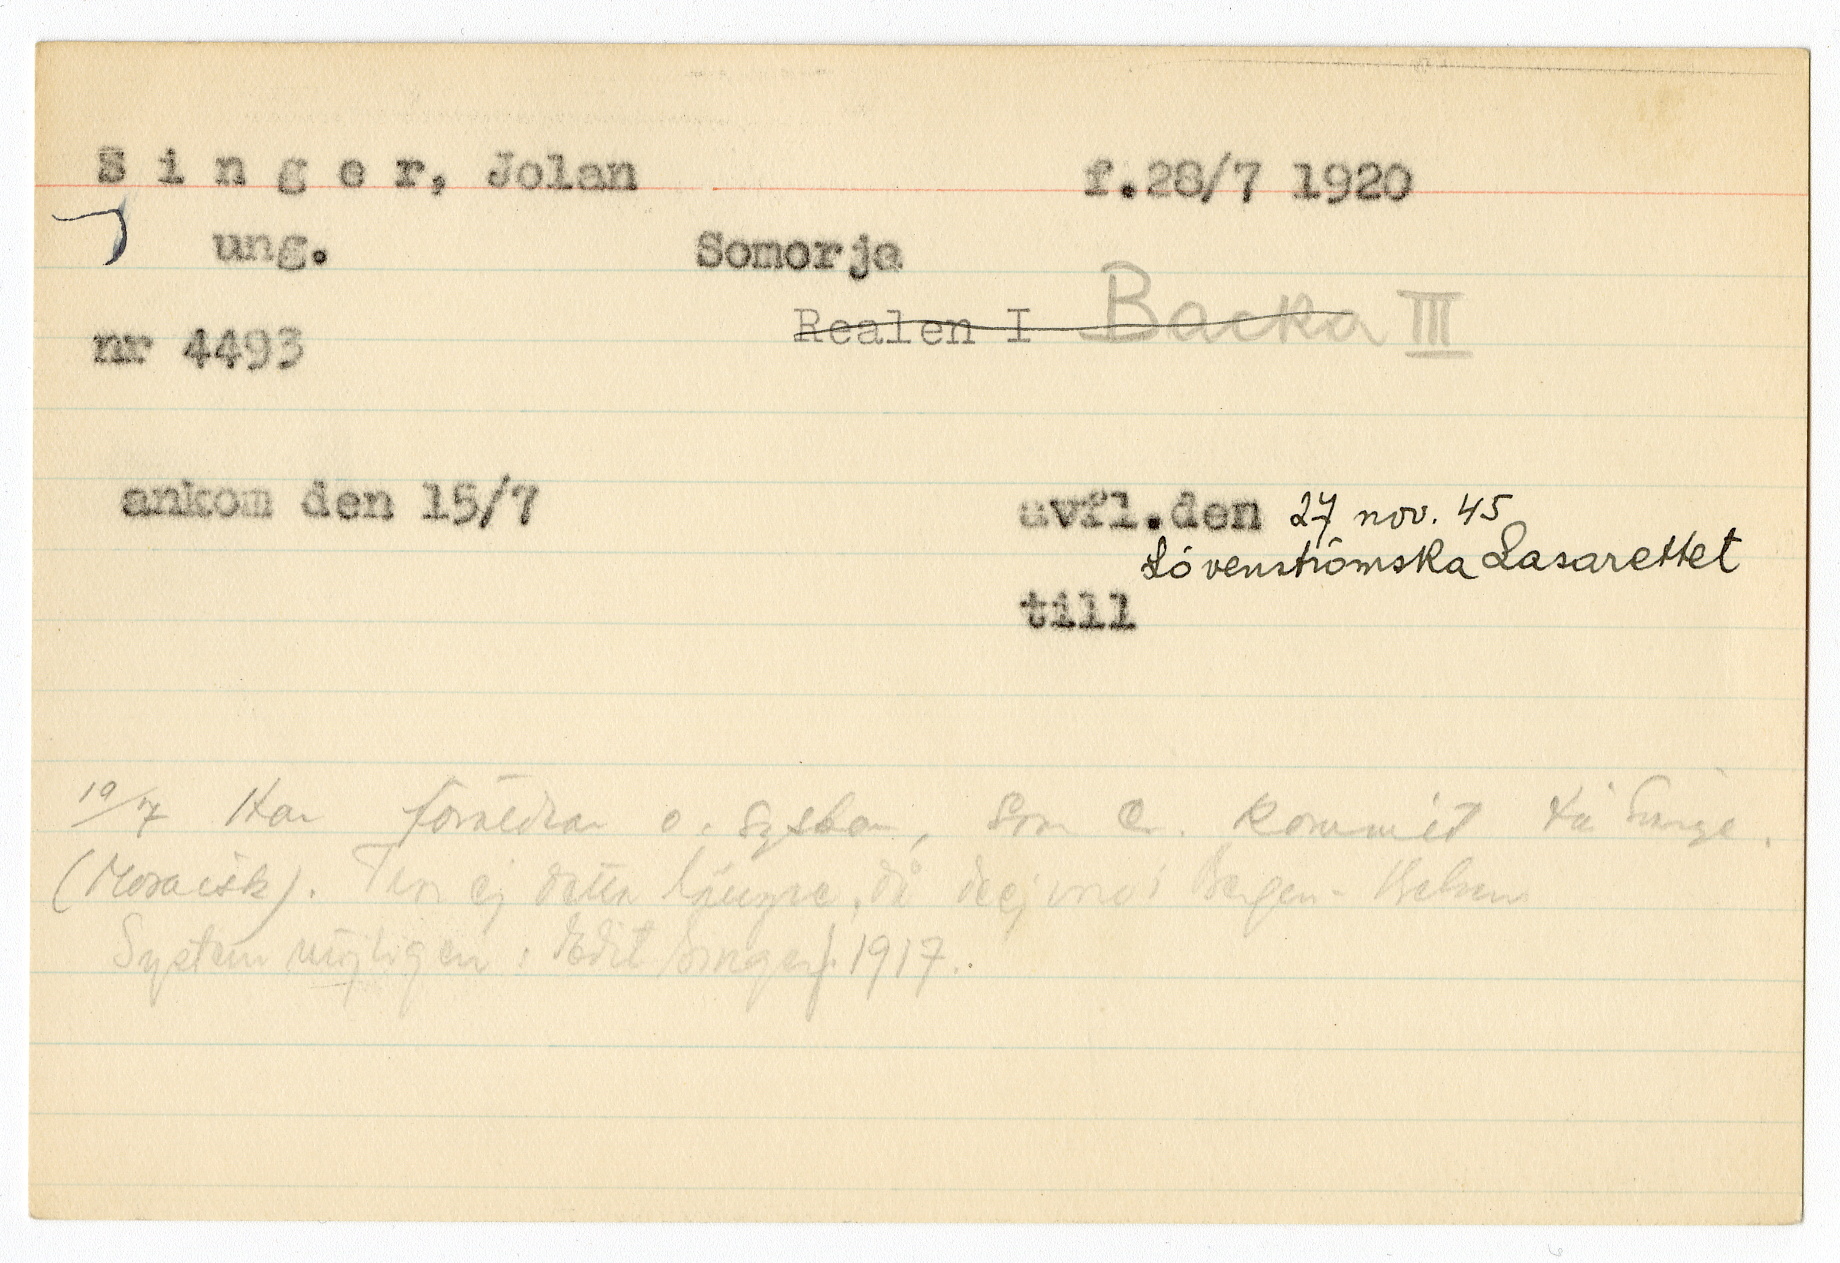 S i n g e r, Jolan f.28/7 1920
ung. Somorja
nr 4493 Realen I Backa III
ankom den 15/7 avfl.den 27 nov. 45
Lövenströmska Lasarettet
till
19/7 Har föräldrar o. syster, som ev. kommit till Sverige.
(Mosaisk). Tror ej detta längre, då de ej voro i Bergen-Belsen
System möjligen: Edit Singer f. 1917.